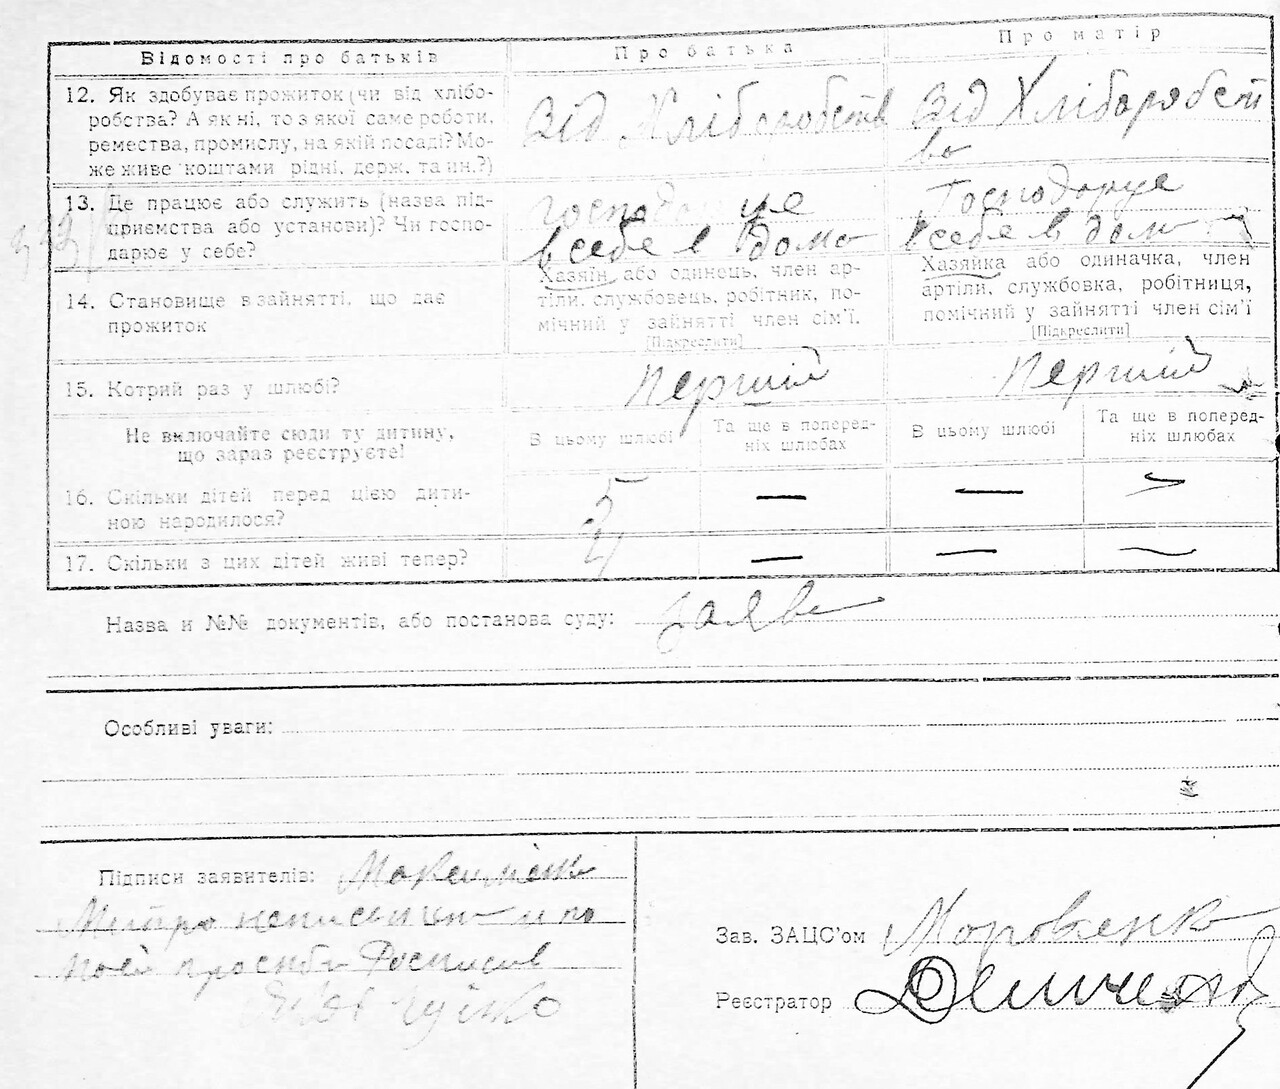 Відомості про батьків
Про батька
Про матір
12. Як здобуває прожиток (чи від хлібо-
робства? А як ні, то з якої саме роботи,
ремества, промислу, на якій посаді? Мо-
же живе коштами рідні, держ. та ин.?)
Від Хліборобств
Від Хліборобст
во
13. Де працює або служить (назва під-
приємства або установи)? Чи госпо-
дарює у себе?
господарце
в себе в дома
Господарце
в себе в дом
14. Становище в зайнятті, що дає
прожиток
Хазяїн або одинець, член ар-
тіли, службовець, робітник, по-
мічний у зайнятті член сім'ї.
[Підкреслити]
Хазяйка або одиначка, член
артіли, службовка, робітниця,
помічний у зайнятті член сім'ї
[Підкреслити]
15. Котрий раз у шлюбі?
перший
перший
Не включайте сюди ту дитину,
що зараз реєструєте!
В цьому шлюбі
Та ще в поперед-
ніх шлюбах
В цьому шлюбі
Та ще в поперед-
ніх шлюбах
16. Скільки дітей перед цією дити-
ною народилося?
5 — — —
17. Скільки з цих дітей живі тепер?
— — —
Назва и №№ документів, або постанова суду: заяве
Особливі уваги:
Підписи заявителів:
Митро неписьмен и по
його просьби Росписивсь
Зав. ЗАЦС'ом
Реєстратор